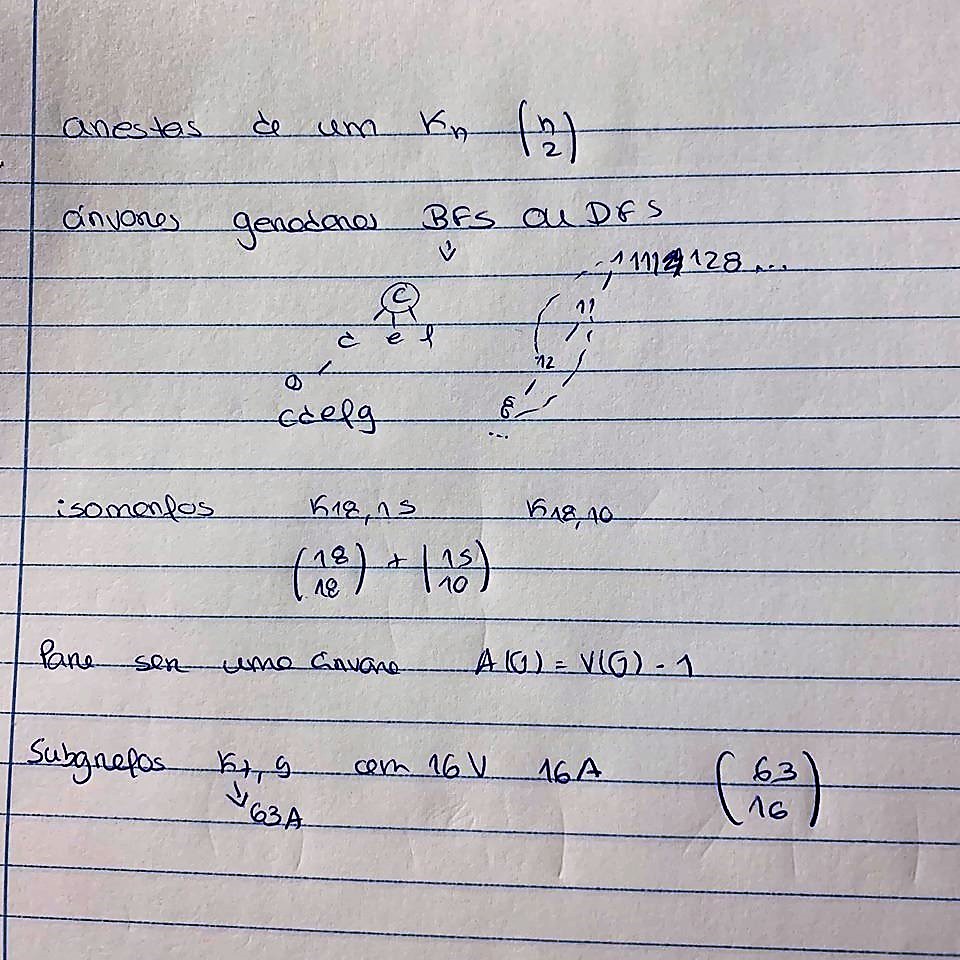 arestas de um Kn (n 2)
árvores geradoras BFS ou DFS
128 ...
C 11
d e f
12
g 8
cdefg ...
isomorfos K18,15 K18,10
(18 18) + (15 10)
Para ser uma árvore A(G) = V(G) - 1
Subgrafos K7,9 com 16V 16A (63 16)
63A